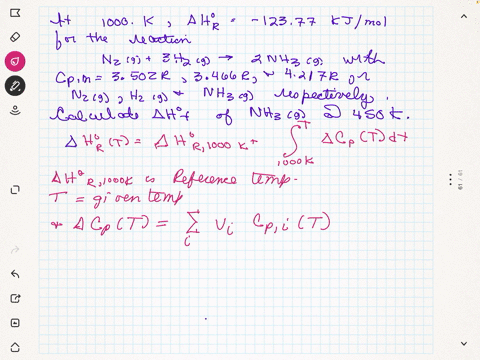 At 1000. K, ΔH°R = -123.77 KJ/mol
for the reaction
N2(g) + 3H2(g) → 2NH3(g) with
Cp,m = 3.502R, 3.466R, & 4.217R for
N2(g), H2(g) & NH3(g) respectively.
Calculate ΔH°f of NH3(g) @ 450 K.
ΔH°R(T) = ΔH°R,1000 K + ∫1000K^T ΔCp(T)dt
ΔH°R,1000K is Reference temp.
T = given temp
& ΔCp(T) = Σi νi Cp,i(T)